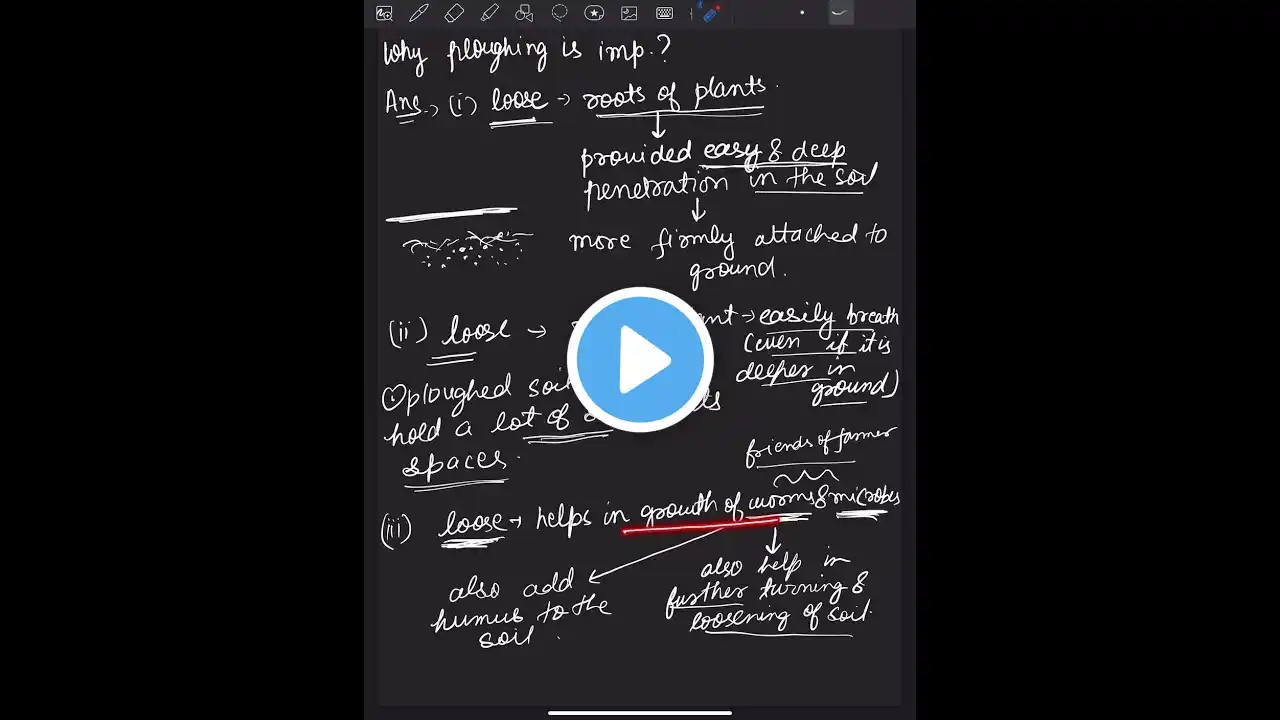 Why ploughing is imp.?
Ans → (i) loose → roots of plants.
provided easy & deep
penetration in the soil
more firmly attached to
ground.
(ii) loose → → easily breath
(even if it is
deeper in
ground)
ploughed soil
hold a lot of
spaces.
friends of farmer
(iii) loose → helps in growth of worms & microbes
also add
humus to the
soil.
also help in
further turning &
loosening of soil.